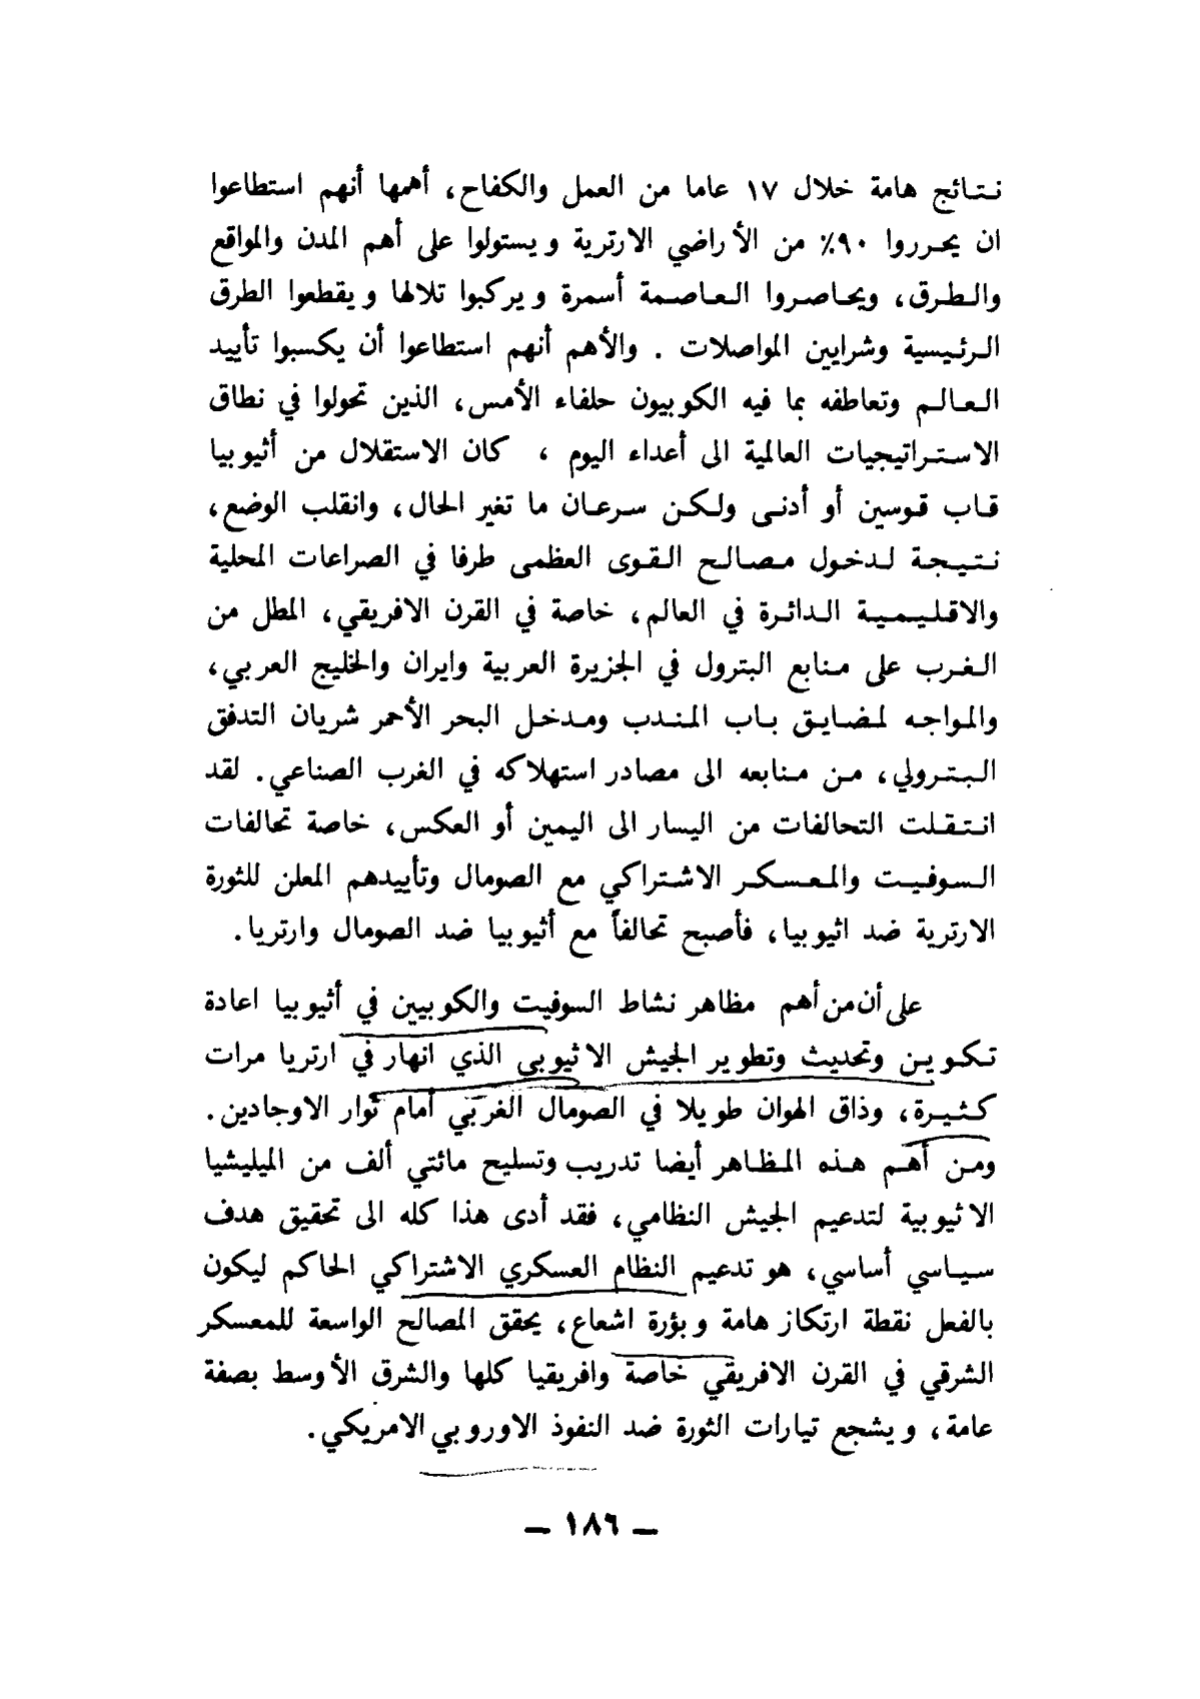 نتائج هامة خلال ١٧ عاما من العمل والكفاح، أهمها أنهم استطاعوا
ان يحرروا ٩٠٪ من الأراضي الارترية ويستولوا على أهم المدن والمواقع
والطرق، ويحاصروا العاصمة أسمرة ويركبوا تلالها ويقطعوا الطرق
الرئيسية وشرايين المواصلات . والأهم أنهم استطاعوا أن يكسبوا تأييد
العالم وتعاطفه بما فيه الكوبيون حلفاء الأمس، الذين تحولوا في نطاق
الاستراتيجيات العالمية الى أعداء اليوم ، كان الاستقلال من أثيوبيا
قاب قوسين أو أدنى ولكن سرعان ما تغير الحال، وانقلب الوضع،
نتيجة لدخول مصالح القوى العظمى طرفا في الصراعات المحلية
والاقليمية الدائرة في العالم، خاصة في القرن الافريقي، المطل من
الغرب على منابع البترول في الجزيرة العربية وايران والخليج العربي،
والمواجه لمضايق باب المندب ومدخل البحر الأحمر شريان التدفق
البترولي، من منابعه الى مصادر استهلاكه في الغرب الصناعي. لقد
انتقلت التحالفات من اليسار الى اليمين أو العكس، خاصة تحالفات
السوفيت والمعسكر الاشتراكي مع الصومال وتأييدهم المعلن للثورة
الارترية ضد اثيوبيا، فأصبح تحالفاً مع أثيوبيا ضد الصومال وارتريا.
على أن من أهم مظاهر نشاط السوفيت والكوبيين في أثيوبيا اعادة
تكوين وتحديث وتطوير الجيش الاثيوبي الذي انهار في ارتريا مرات
كثيرة، وذاق الهوان طويلا في الصومال الغربي أمام ثوار الاوجادين.
ومن أهم هذه المظاهر أيضا تدريب وتسليح مائتي ألف من الميليشيا
الاثيوبية لتدعيم الجيش النظامي، فقد أدى هذا كله الى تحقيق هدف
سياسي أساسي، هو تدعيم النظام العسكري الاشتراكي الحاكم ليكون
بالفعل نقطة ارتكاز هامة وبؤرة اشعاع، يحقق المصالح الواسعة للمعسكر
الشرقي في القرن الافريقي خاصة وافريقيا كلها والشرق الأوسط بصفة
عامة، ويشجع تيارات الثورة ضد النفوذ الاوروبي الامريكي.
— ١٨٦ —